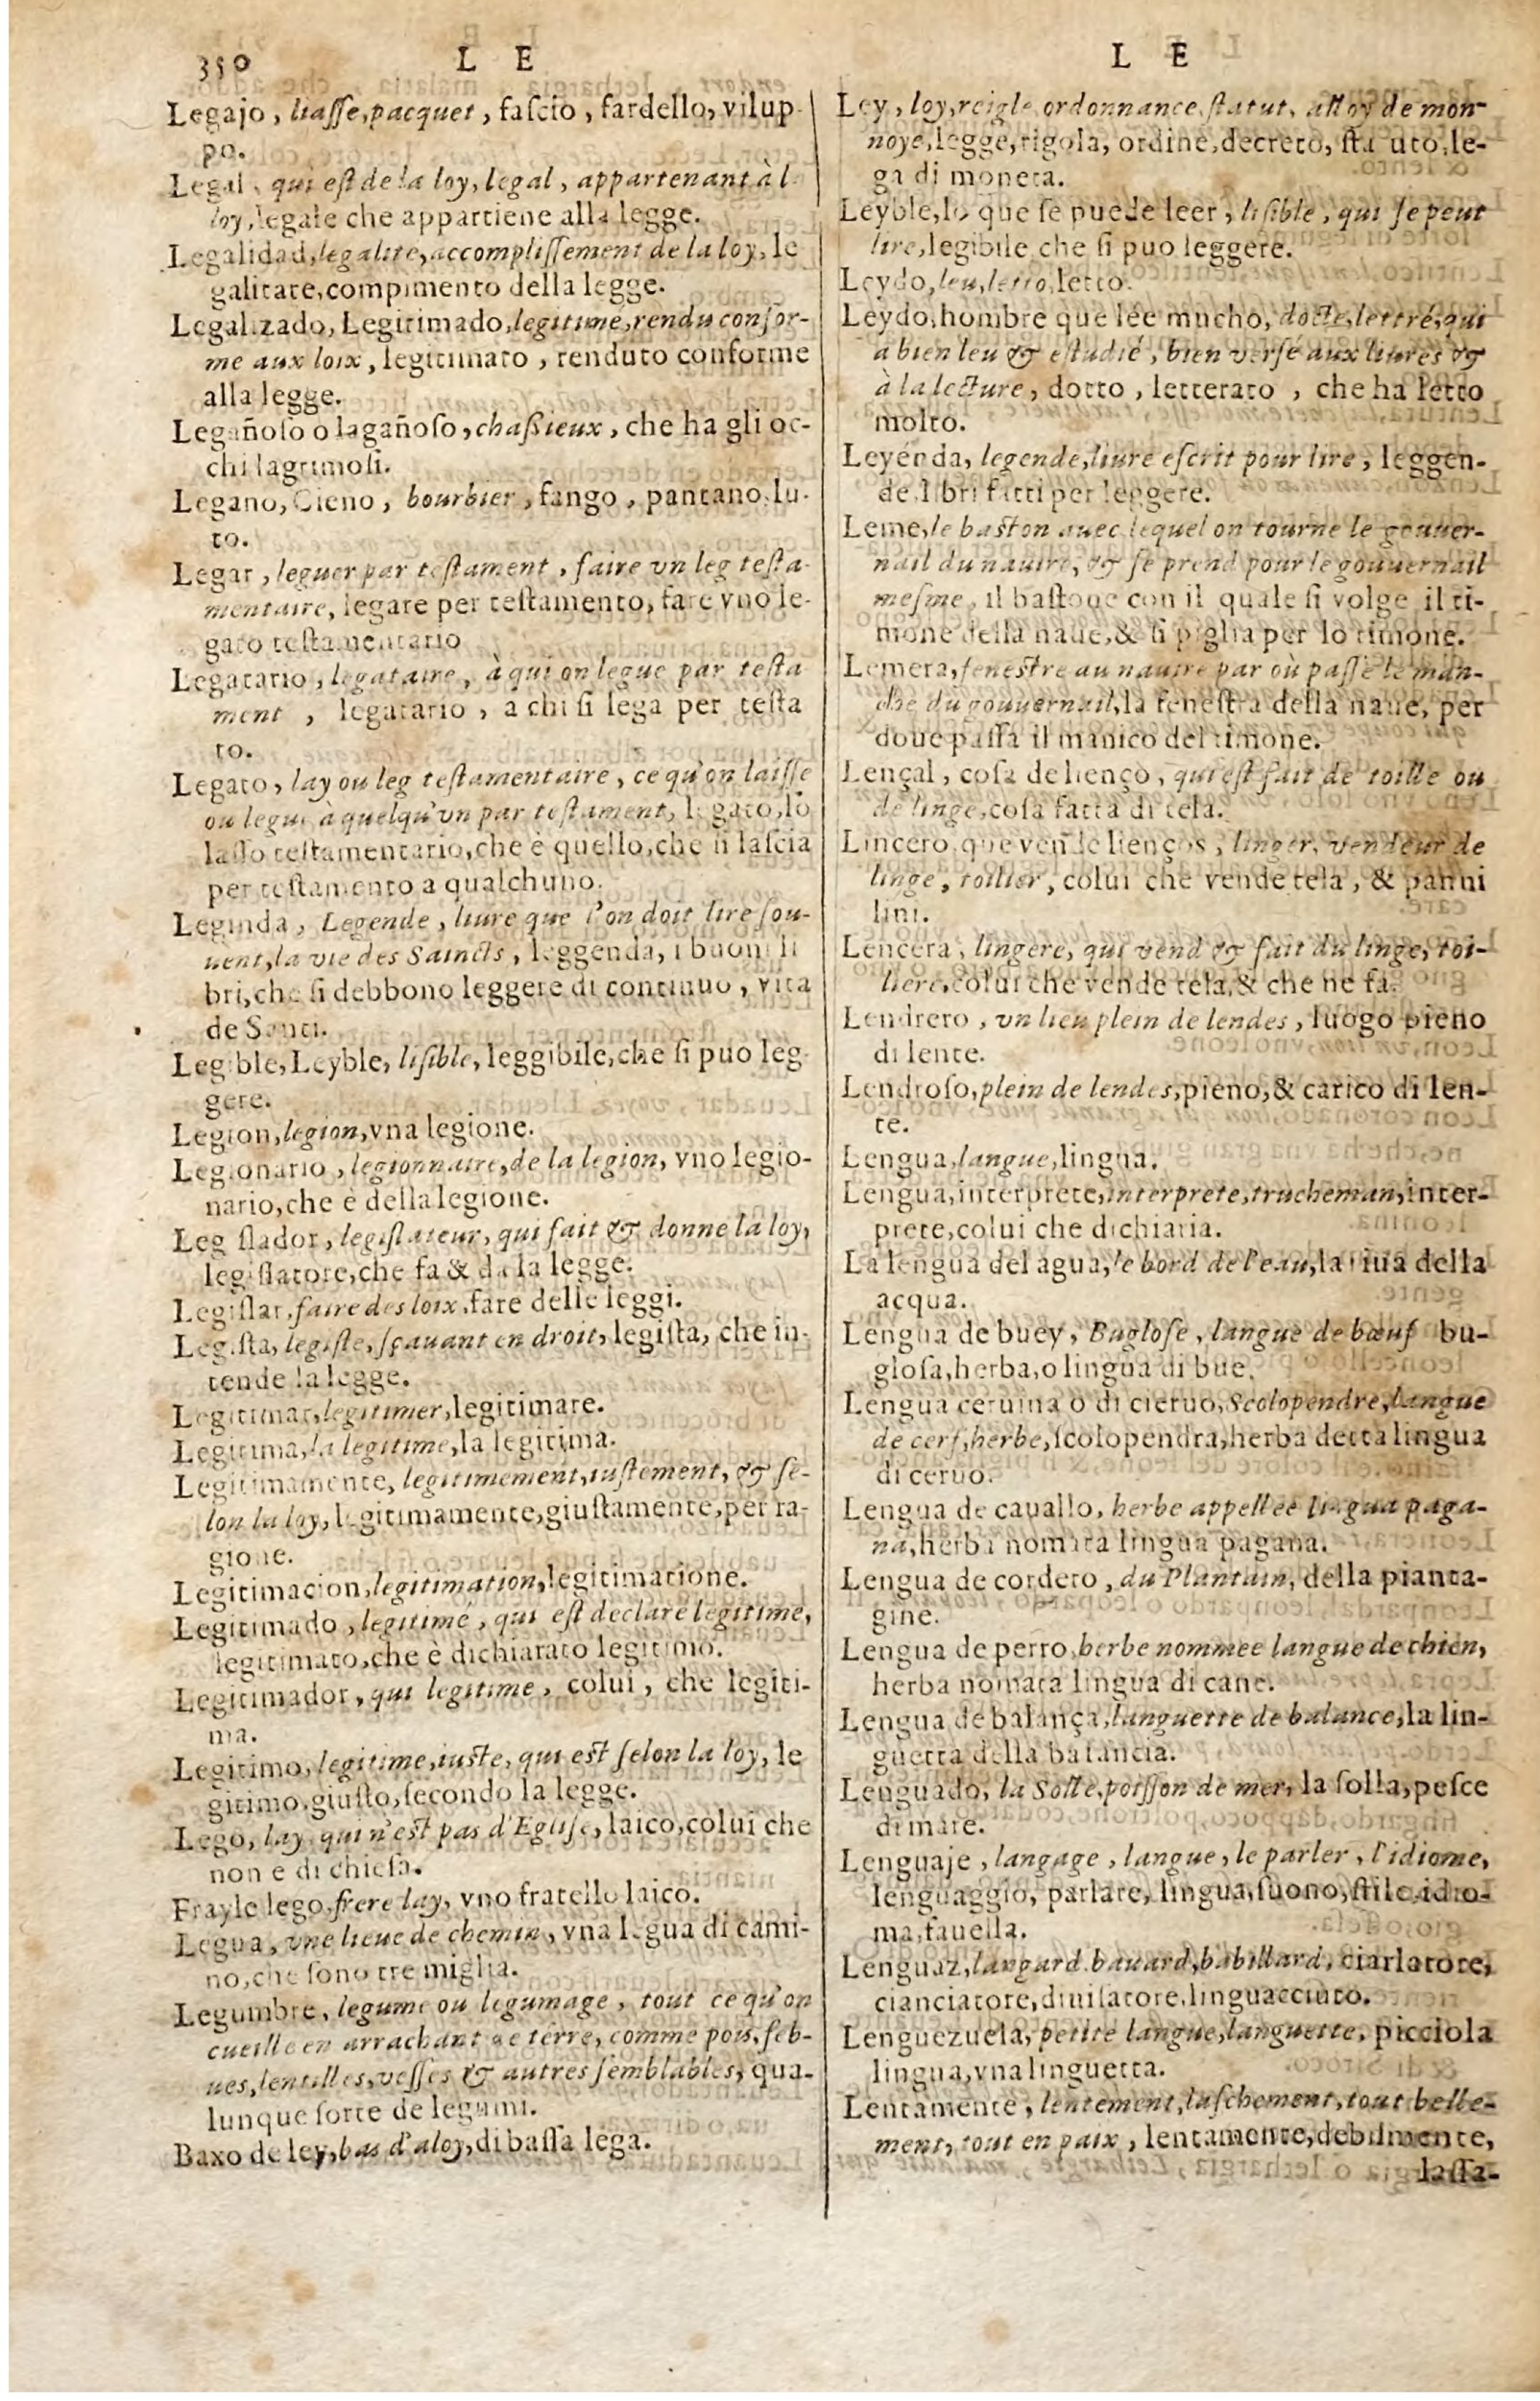 350 L E
Legajo, liasse, pacquet, fascio, fardello, vilup-
po.
Legal, qui est de la loy, legal, appartenant à l
loy, legale che appartiene alla legge.
Legalidad, legalite, accomplissement de la loy, le
galitate, compimento della legge.
Legalizado, Legitimado, legitime, rendu confor-
me aux loix, legitimato, renduto conforme
alla legge.
Legañoso o lagañoso, chassieux, che ha gli oc-
chi lagrimosi.
Legano, Cieno, bourbier, fango, pantano, lu-
to.
Legar, leguer par testament, faire vn leg testa-
mentaire, legare per testamento, fare vno le-
gato testamentario
Legatario, legataire, à qui on legue par testa
ment, legatario, a chi si lega per testa
to.
Legato, lay ou leg testamentaire, ce qu'on laisse
ou legue à quelqu'vn par testament, legato, lo
lasso testamentario, che è quello, che si lascia
per testamento a qualchuno.
Leginda, Legende, liure que l'on doit lire sou-
uent, la vie des Saincts, leggenda, i buoni li
bri, che si debbono leggere di continuo, vita
de Santi.
Legible, Leyble, lisible, leggibile, che si puo leg-
gere.
Legion, legion, vna legione.
Legionario, legionnaire, de la legion, vno legio-
nario, che è della legione.
Legislador, legislateur, qui fait & donne la loy,
legislatore, che fa & da la legge.
Legislar, faire des loix, fare delle leggi.
Legista, legiste, sçauant en droit, legista, che in-
tende la legge.
Legitimar, legitimer, legitimare.
Legitima, la legitime, la legitima.
Legitimamente, legitimement, iustement, & se-
lon la loy, legitimamente, giustamente, per ra-
gione.
Legitimacion, legitimation, legitimatione.
Legitimado, legitimé, qui est declaré legitime,
legitimato, che è dichiarato legitimo.
Legitimador, qui legitime, colui, che legiti-
ma.
Legitimo, legitime, iuste, qui est selon la loy, le
gitimo, giusto, secondo la legge.
Lego, lay, qui n'est pas d'Eglise, laico, colui che
non e di chiesa.
Frayle lego, frere lay, vno fratello laico.
Legua, vne lieue de chemin, vna legua di cami-
no, che sono tre miglia.
Legumbre, legume ou legumage, tout ce qu'on
cueille en arrachant de terre, comme pois, feb-
ues, lentilles, vesses & autres semblables, qua-
lunque sorte de legumi.
Baxo de ley, bas d'aloy, di bassa lega.
L E
Ley, loy, reigle, ordonnance, statut, alloy de mon-
noye, legge, rigola, ordine, decreto, statuto, le-
ga di moneta.
Leyble, lo que se puede leer, lisible, qui se peut
lire, legibile, che si puo leggere.
Leydo, leu, letto, letto.
Leydo, hombre que lée mucho, docte, lettré, qui
a bien leu & estudié, bien versé aux liures &
à la lecture, dotto, letterato, che ha letto
molto.
Leyénda, legende, liure escrit pour lire, leggen-
de, libri fatti per leggere.
Leme, le baston auec lequel on tourne le gouuer-
nail du nauire, & se prend pour le gouuernail
mesme, il bastone con il quale si volge il ti-
mone della naue, & si piglia per lo timone.
Lemera, fenestre au nauire par où passe le man-
che du gouuernail, la fenestra della naue, per
doue passa il manico del timone.
Lençal, cosa de lienço, qui est fait de toille ou
de linge, cosa fatta di tela.
Lincero, que vende lienços, linger, vendeur de
linge, toilier, colui che vende tela, & panni
lini.
Lencera, lingere, qui vend & fait du linge, toi-
liere, colui che vende tela, & che ne fa.
Lendrero, vn lieu plein de lendes, luogo pieno
di lente.
Lendroso, plein de lendes, pieno, & carico di len-
te.
Lengua, langue, lingua.
Lengua, interprete, interprete, trucheman, inter-
prete, colui che dichiaria.
La lengua del agua, le bord de l'eau, la riua della
acqua.
Lengua de buey, Buglose, langue de bœuf bu-
glosa, herba, o lingua di bue.
Lengua ceruina o di cieruo, Scolopendre, langue
de cerf, herbe, scolopendra, herba detta lingua
di ceruo.
Lengua de cauallo, herbe appellée lingua paga-
na, herba nomata lingua pagana.
Lengua de cordero, du Plantain, della pianta-
gine.
Lengua de perro, herbe nommee langue de chien,
herba nomata lingua di cane.
Lengua de balança, languette de balance, la lin-
guetta della balancia.
Lenguado, la Solle, poisson de mer, la solla, pesce
di mare.
Lenguaje, langage, langue, le parler, l'idiome,
lenguaggio, parlare, lingua, suono, stile, idio-
ma, fauella.
Lenguaz, langard, bauard, babillard, ciarlatore,
cianciatore, diuisatore, linguacciuto.
Lenguezuela, petite langue, languette, picciola
lingua, vna linguetta.
Lentamente, lentement, laschement, tout belle-
ment, tout en paix, lentamente, debilmente,
lassa-